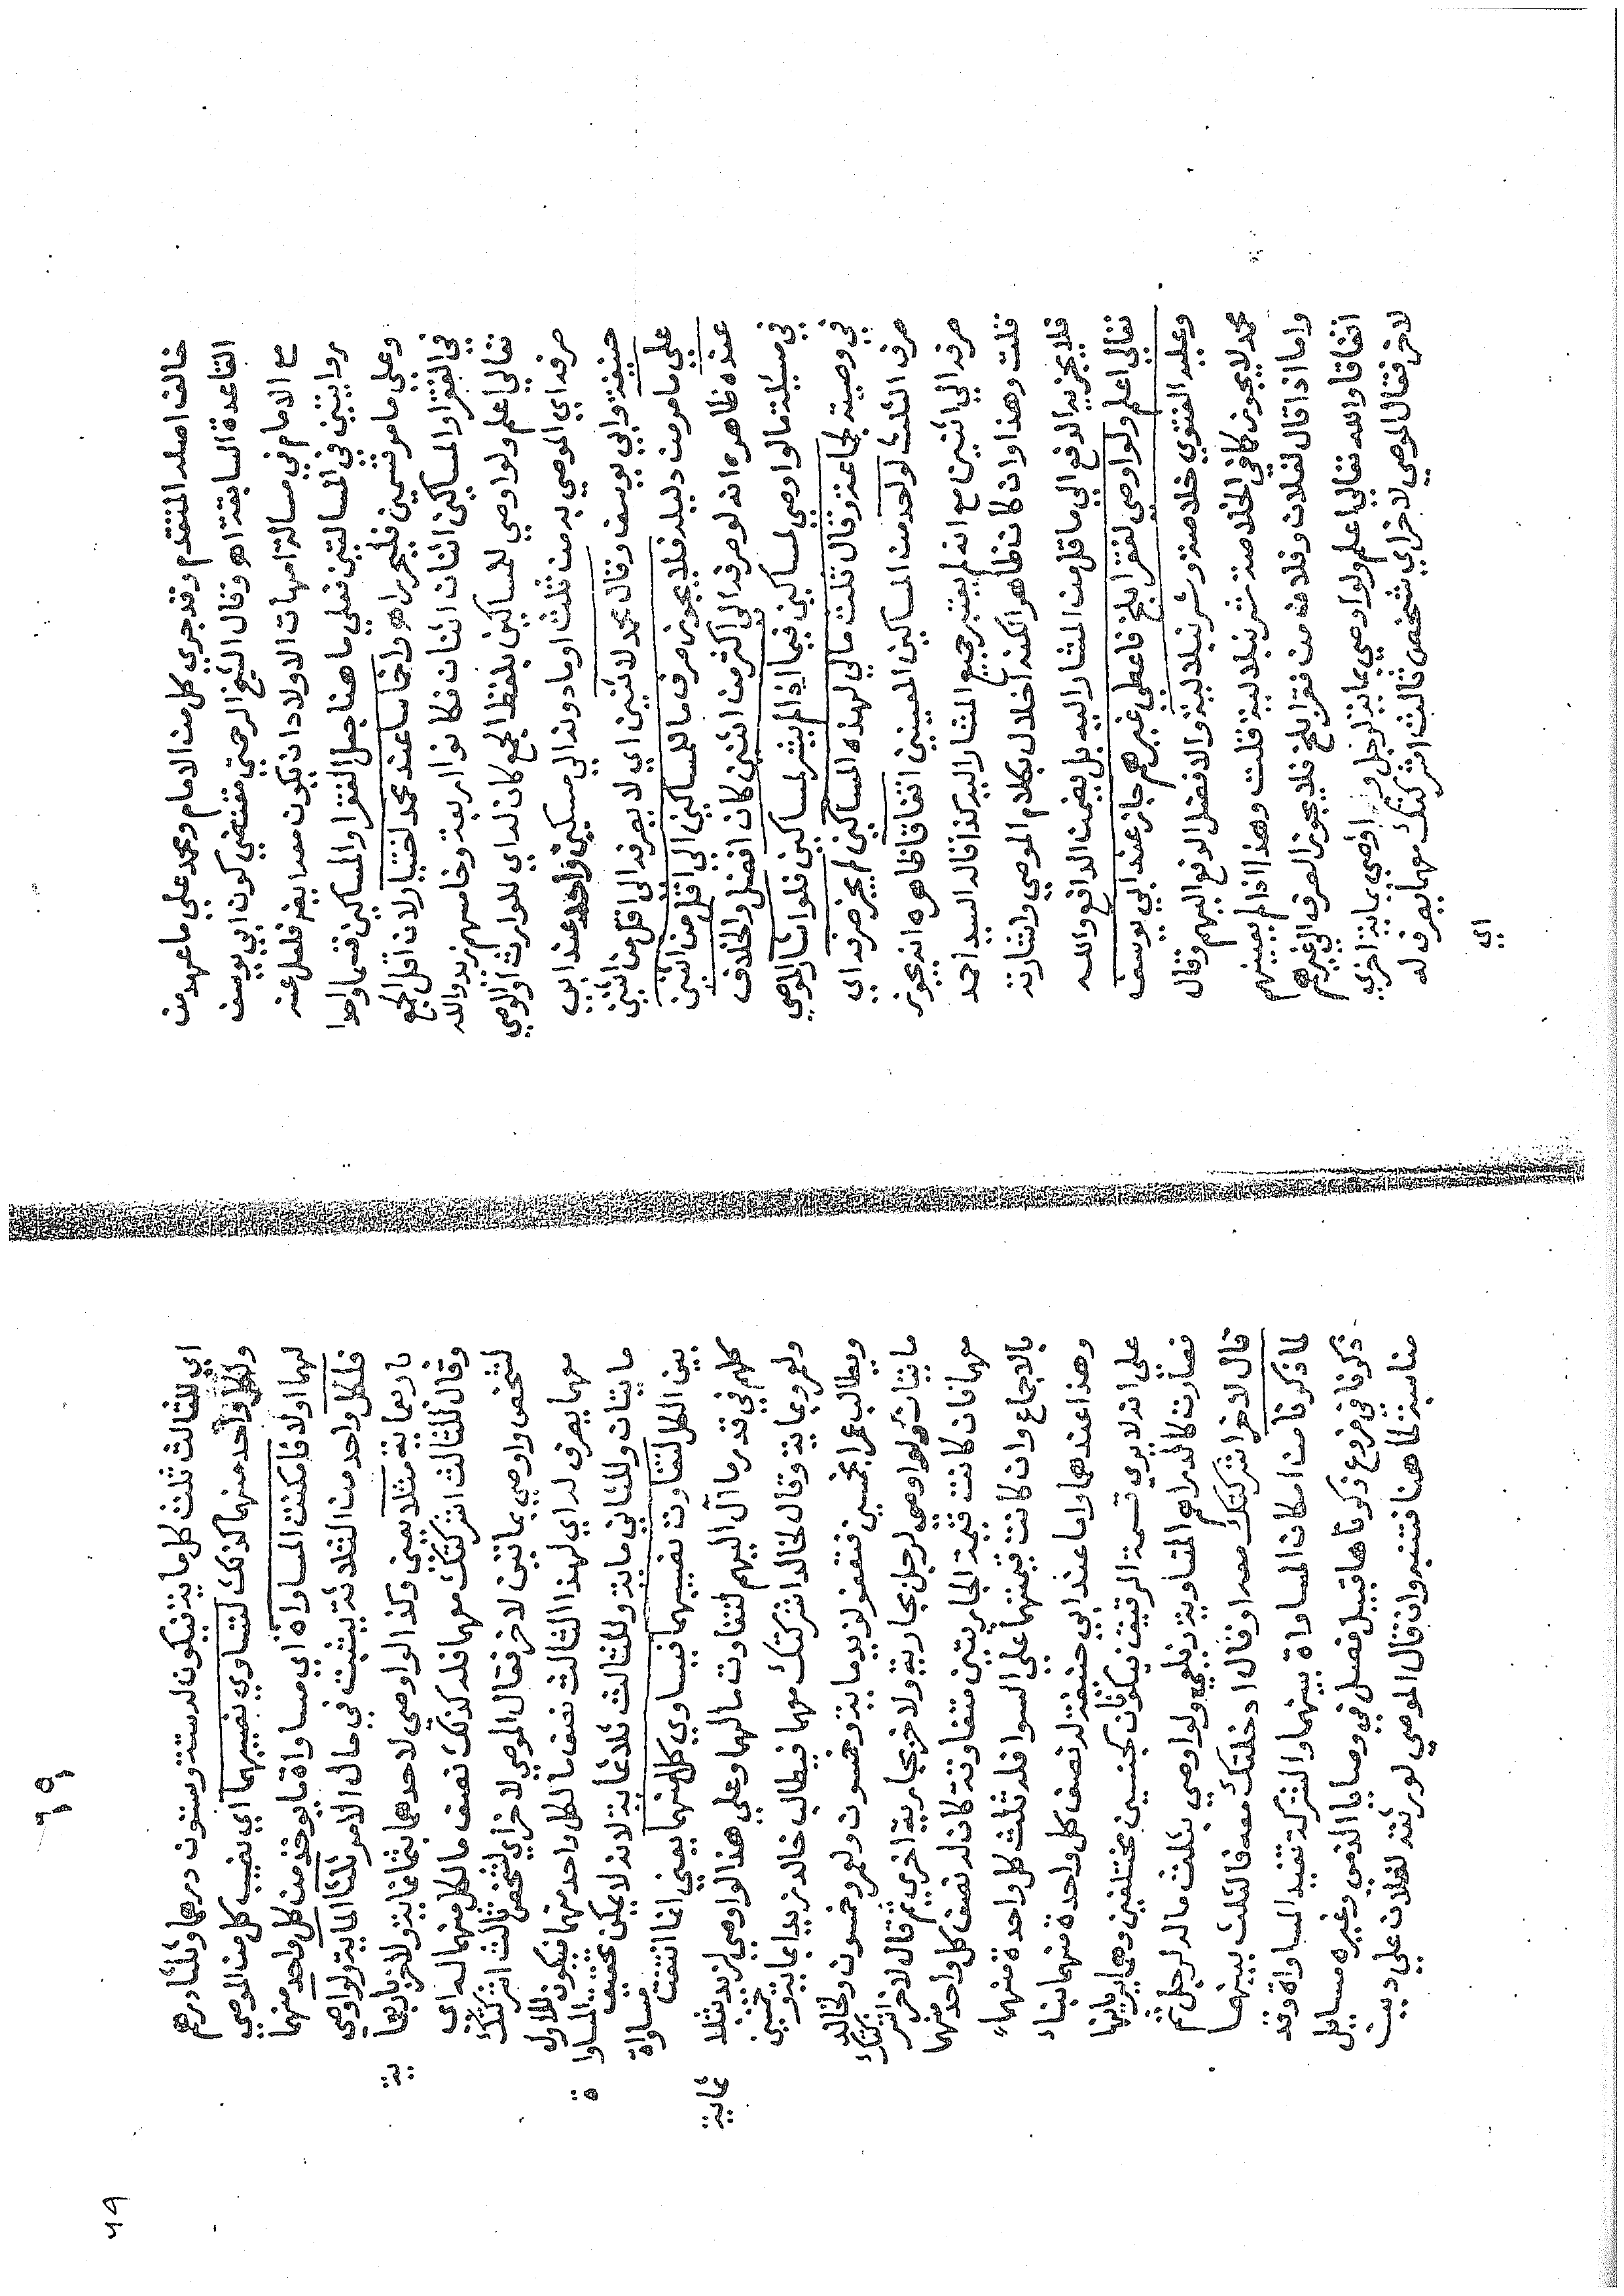 خالف اصله المتقدم وقد جري كل من الامام ومحمد علي ما عهد من
القاعدة السابقة اهو وقال الشيخ الرحمتي مقتضي كون ابي يوسف
مع الامام في مسالة امهات الاولاد ان يكون معه ايضا فلعل عنه
روايتين في المسالتين فعلي ما هنا جعل الفقرا والمساكين قسما واحدا
وعلي ما مر قسمين فليحرر اهو واخماسا عند محمد اختيار لان اقل الجمع
في الفقرا والمساكين اثنان اثنان فكانوا اربعة وخامسهم زيد والله
تعالي اعلم ولو اوصي للمساكين بلفظ الجمع كان له اي للوارث او للوصي
صرفه اي الموصي به من ثلث او ما دونه الي مسكين واحد عند ابي
حنيفة وابي يوسف وقال محمد لاثنين اي لا يصرفه الي اقل من اثنين
علي ما مر من دليله فلا يجوز صرف ما للمساكين الي اقل من اثنين
عنده ظاهره انه لو صرفه الي اكثر من اثنين كان افضل والخلاف
في مسئلة ما لو اوصي لمساكين فيما اذا لم يشر لمساكين فلو اشار الموصي
في وصيته لجماعة وقال ثلث مالي لهذه المساكين لم يجز صرفه اي
صرف الثلث لواحد من المساكين المعينين اتفاقا ظاهره انه يجوز
صرفه الي اثنين مع انه لم يعتبر جميع المشار اليه كذا قاله السيد احمد
قلت وهذا وان كان ظاهرا لكنه اخلال بكلام الموصي واشارته
فلا يجزيه الدفع الي ما قل من المشار اليه بل يضمن الدافع والله
تعالي اعلم ولو اوصي لفقرا بلخ فاعطي غيرهم جاز عند ابي يوسف
وعليه الفتوي خلاصة وشرنبلالية والافضل الدفع اليهم وقال
محمد لا يجوز كما في الخلاصة شرنبلالية قلت وهذا اذا لم يعينهم
واما اذا قال لفلان وفلان من فقرا بلخ فلا يجوز الصرف الي غيرهم
اتفاقا والله تعالي اعلم ولو اوصي بماية لرجل و اوصي بماية اخري
لاخر فقال الموصي لاخر اي شخص ثالث اشركتك معهما يصرف له
اي
٦٩
اي للثالث ثلث كل ماية فيكون له ستة وستون درهما وثلثا درهم
ولكل واحد منهما كذلك لتساوي نصيبهما اي نصيب كل من الموصي
لهما اولا فامكنت المساواة اي مساواة ما يوخذ من كل واحد منهما
فلكل واحد من الثلاثة يثبت في مال الامر ثلثا الماية ولو اوصي
باربعماية مثلا يعني وكذا لو اوصي لاحدهما بثمانماية وللاخر باربعما
ية
وقال للثالث اشركتك معهما فله كذلك نصف ما لكل منهما له اي
لشخص واوصي بماتين لاخر فقال الموصي لاخر اي لشخص ثالث اشركتك
معهما يصرف له اي لهذا الثالث نصف ما لكل واحد منهما فيكون للاول
مايتان وللثاني ماية وللثالث ثلاثماية لانه لا يمكن تحقيق المساوا
ة
بين الكل لتفاوت نصيبهما فيساوي كل منهما يعني انما انتفت مساواة
كلهم في قدر ما آل اليهم لتفاوت مالهما وعلي هذا لو اوصي لزيد مثلا
بماية
ولعمرو بماية وقال لخالد اشركتك معهما فيطالب خالد زيدا بماية وخمسين
ويطالب عمرا بخمسين فتفضل لزيد ماية وخمسون ولعمرو خمسون ولخالد
مايتان ولو اوصي لرجل بجارية ولاخر بجارية اخري ثم قال لاخر اشركتك
معهما فان كانت قيمة الجاريتين متفاوتة كان له نصف كل واحد منهما
بالاجماع وان كانت قيمتهما علي السوا فله ثلث كل واحدة منهما
وهذا عندهما واما عند ابي حنيفة له نصف كل واحدة منهما بناء
علي انه لا يري قسمة الرقيق فيكونان كجنسين مختلفين وهما يريانها
فصارت كالدراهم المتساوية زيلعي ولو اوصي بثلث ماله لرجل ثم
قال لاخر اشركتك معه او قال ادخلتك معه فالثلث بينهما
لما ذكرنا من امكان المساواة بينهما والشركة تفيد المساواة وقد
ذكرنا في فروع ذكرناها قبيل فصل في وصايا الذمي وغيره مسايل
مناسبة لما هنا فتنبه وان قال الموصي لورثته لفلان علي دين
٦٩